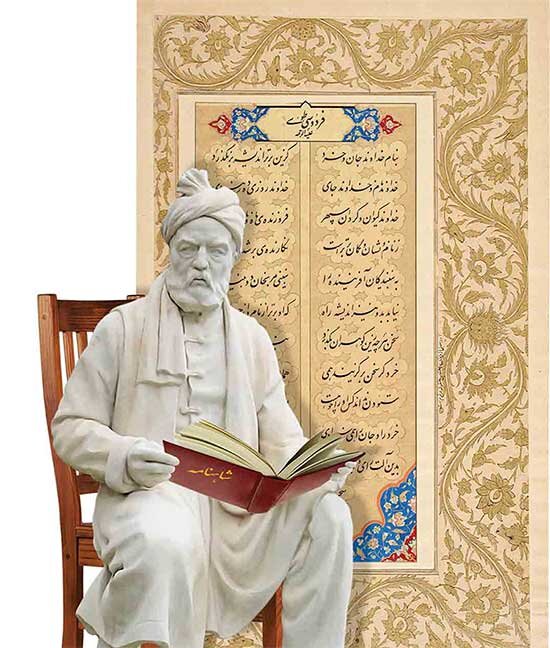 فردوسی طوسی
علیه الرحمه
بنام خداوند جان و خرد کزین برتر اندیشه برنگذرد
خداوند نام و خداوند جای خداوند روزی ده
خداوند کیوان و گردان سپهر فروزنده‌ی
ز نام و نشان و گمان برترست نگارنده‌ی بر شده
به بینندگان آفریننده را نبینی مرنجان دو
نیابد بدو نیز اندیشه راه که او برتر از نام و
سخن هر چه زین گوهران بگذرد
خرد گر سخن برگزیند همی همی
ستودن نداند کس او را چو هست
خرد را و جان را همی
بدین آلت رای
شاهنامه